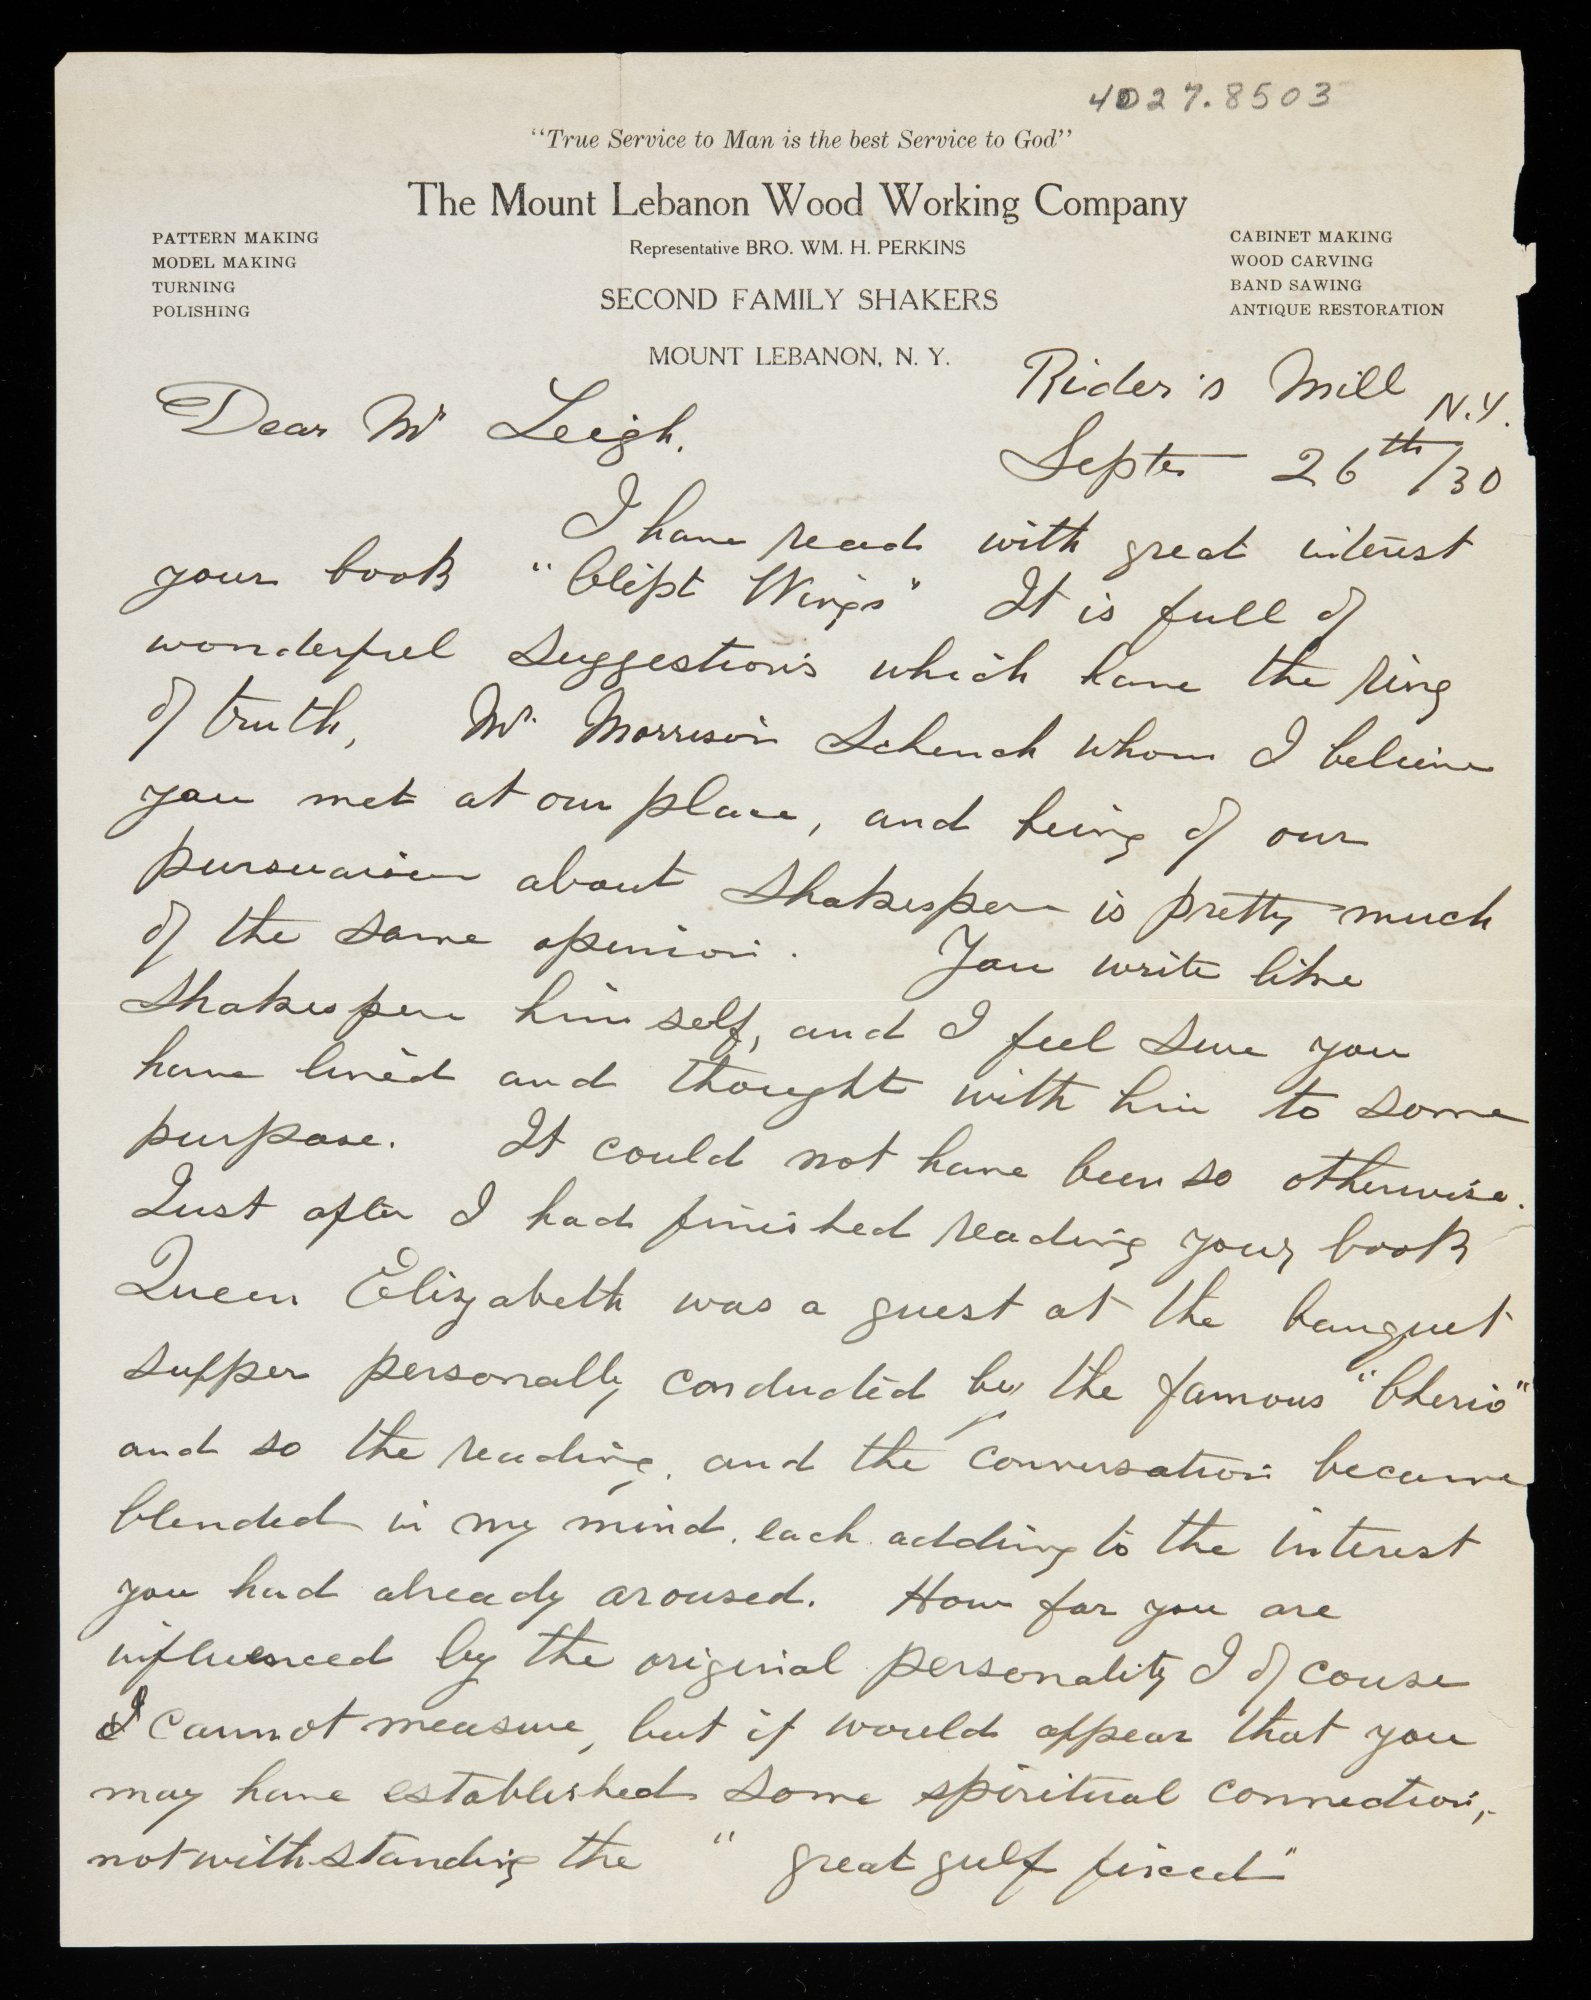 4027.8503
"True Service to Man is the best Service to God"
The Mount Lebanon Wood Working Company
PATTERN MAKING
MODEL MAKING
TURNING
POLISHING
Representative BRO. WM. H. PERKINS
SECOND FAMILY SHAKERS
MOUNT LEBANON, N. Y.
CABINET MAKING
WOOD CARVING
BAND SAWING
ANTIQUE RESTORATION
Rider's Mill N.Y.
Septer 26th/30
Dear Mr Leigh.
I have read with great interest
your book "Clipt Wings" It is full of
wonderful suggestions which have the ring
of truth, Mr. Morrison Schenck whom I believe
you met at our place, and being of our
pursuaion about Shakesper is pretty much
of the same opinion. You write like
Shakesper himself, and I feel sure you
have lived and thought with him to some
purpose. It could not have been so otherwise.
Just after I had finished reading your book
Queen Elizabeth was a guest at the banquet
supper personally conducted by the famous "Cherio"
and so the reading, and the conversation became
blended in my mind, each adding to the interest
you had already aroused. How far you are
influenced by the original personality I of couse
I cannot measure, but it would appear that you
may have established some spiritual connection,
notwithstanding the "great gulf fixed"